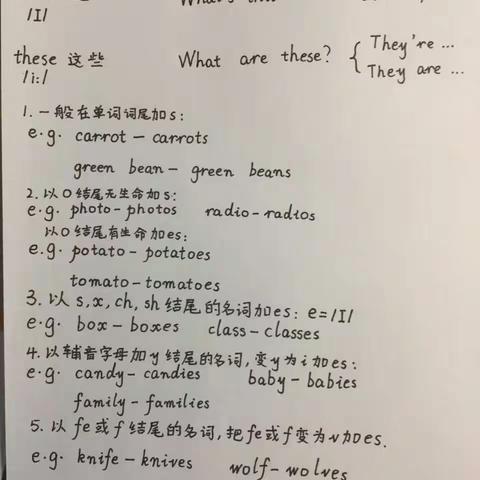 /I/
these 这些 What are these? { They're ...
/i:/ They are ...
1. 一般在单词词尾加s:
e.g. carrot – carrots
green bean – green beans
2. 以o结尾无生命加s:
e.g. photo – photos radio – radios
以o结尾有生命加es:
e.g. potato – potatoes
tomato – tomatoes
3. 以s,x,ch,sh结尾的名词加es: e=/I/
e.g. box – boxes class – classes
4. 以辅音字母加y结尾的名词,变y为i加es:
e.g. candy – candies baby – babies
family – families
5. 以fe或f结尾的名词,把fe或f变为v加es.
e.g. knife – knives wolf – wolves